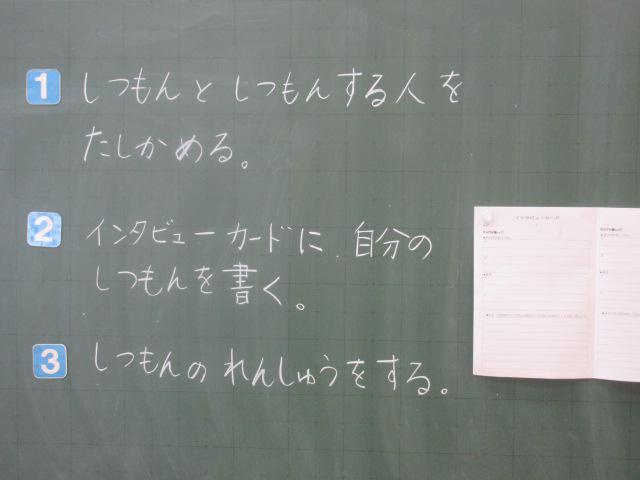 1 しつもんとしつもんする人を
たしかめる。
2 インタビューカードに、自分の
しつもんを書く。
3 しつもんのれんしゅうをする。
インタビューカード